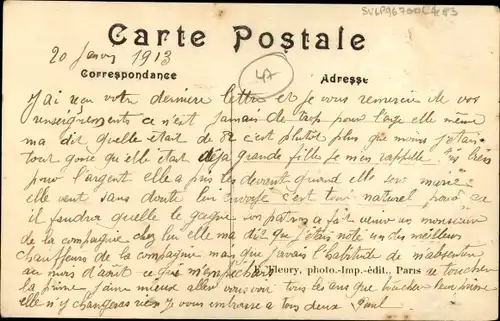 Carte Postale
20 Janv 1913
Correspondance
Adresse
J'ai reçu votre dernière lettre et je vous remercie de vos
renseignements ce n'est jamais de trop pour l'age elle meme
ma dit quelle était de 82 c'est plutot plus que moins j'étais
tout gosse qu'elle était déja grande fille je m'en rappelle très bien
pour l'argent elle a pris les devant quand elle sera
elle veut sans doute lui c'est tout naturel
il faudra quelle le gagne son patron a fait venir un monsieur
de la compagnie chez lui elle ma dit que j'étais noté un des meilleurs
chauffeurs de la compagnie mais que j'avais l'habitude de m'absenter
au mois d'aout ce que m'empechait de toucher
E. Fleury, photo.-Imp.-édit., Paris
la prime j'aime mieux aller vous voir tous les ans que toucher leur prime
elle n'y changeras rien Je vous embrasse a tous deux Paul